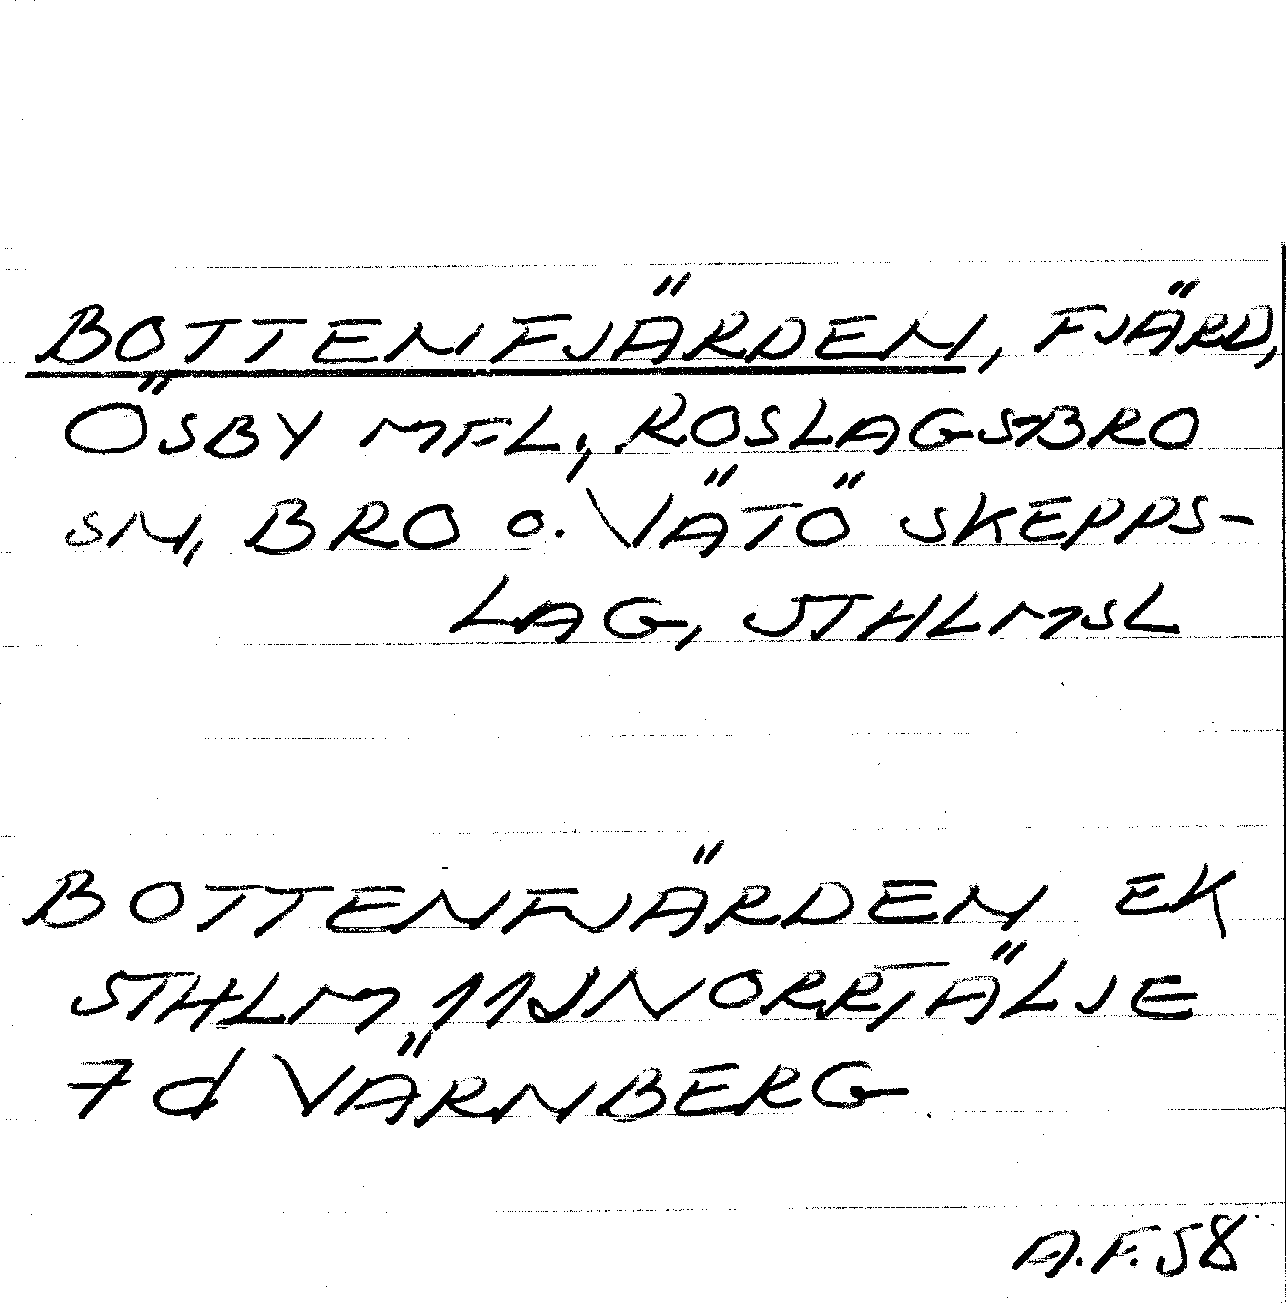 BOTTENFJÄRDEN, FJÄRD,
ÖSBY MFL, ROSLAGSBRO
SN, BRO o. VÄTÖ SKEPPS-
LAG, STHLMSL
BOTTENFJÄRDEN EK
STHLM 11J NORRTÄLJE
7d VÄRNBERG
A.F. 58